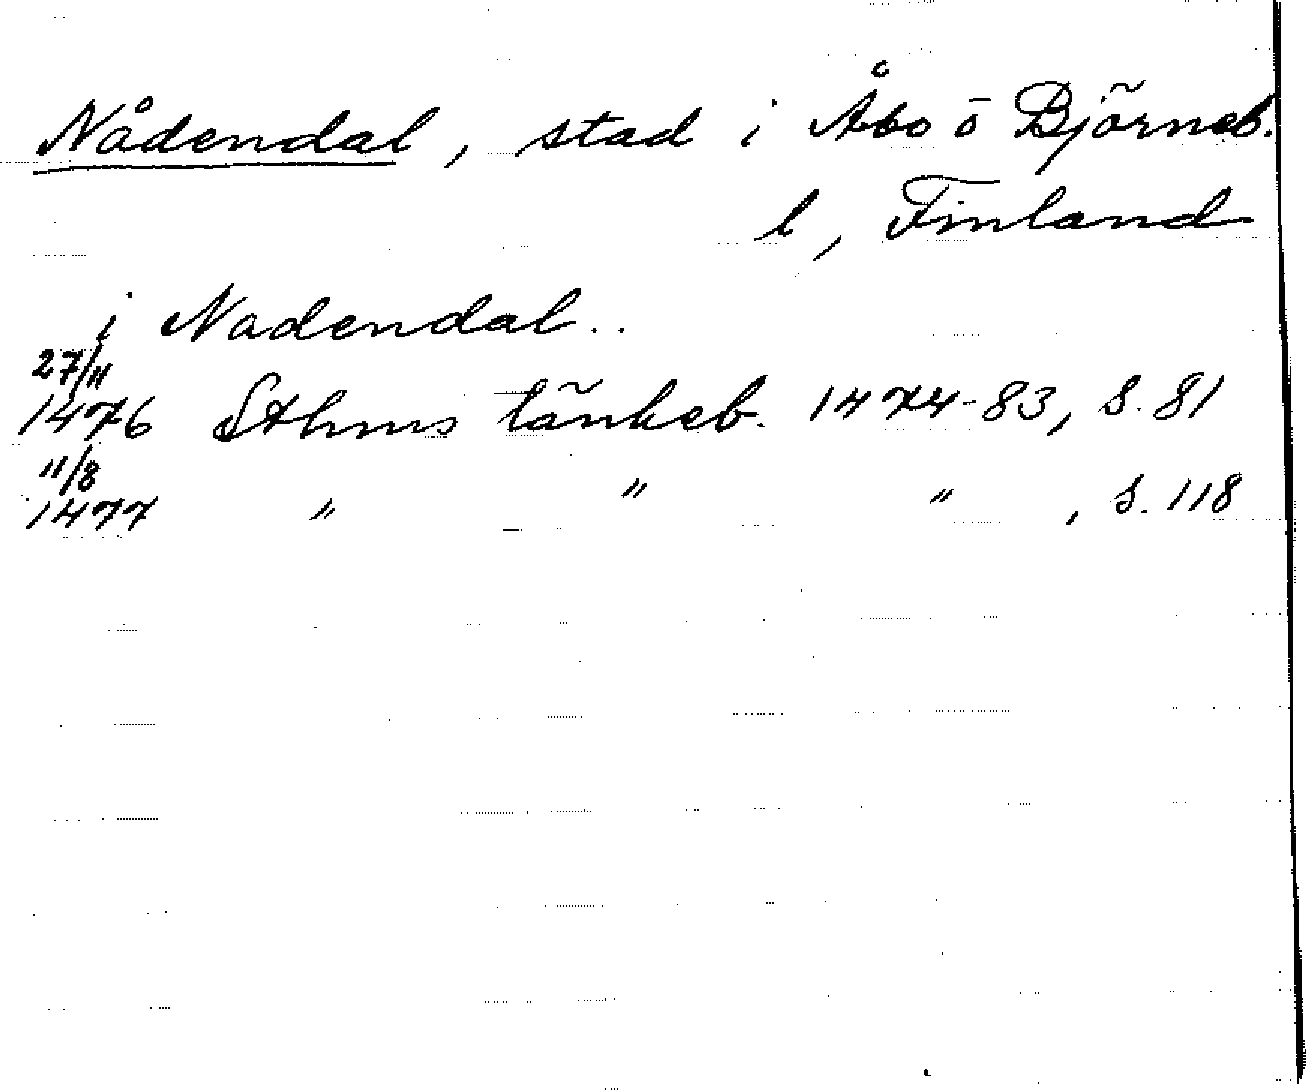 Nådendal, stad i Åbo ō Björneb.
l, Finland
i Nadendal..
27/11
1476 Sthms tänkeb. 1474-83, S. 81
11/8
1477 " " " , S. 118